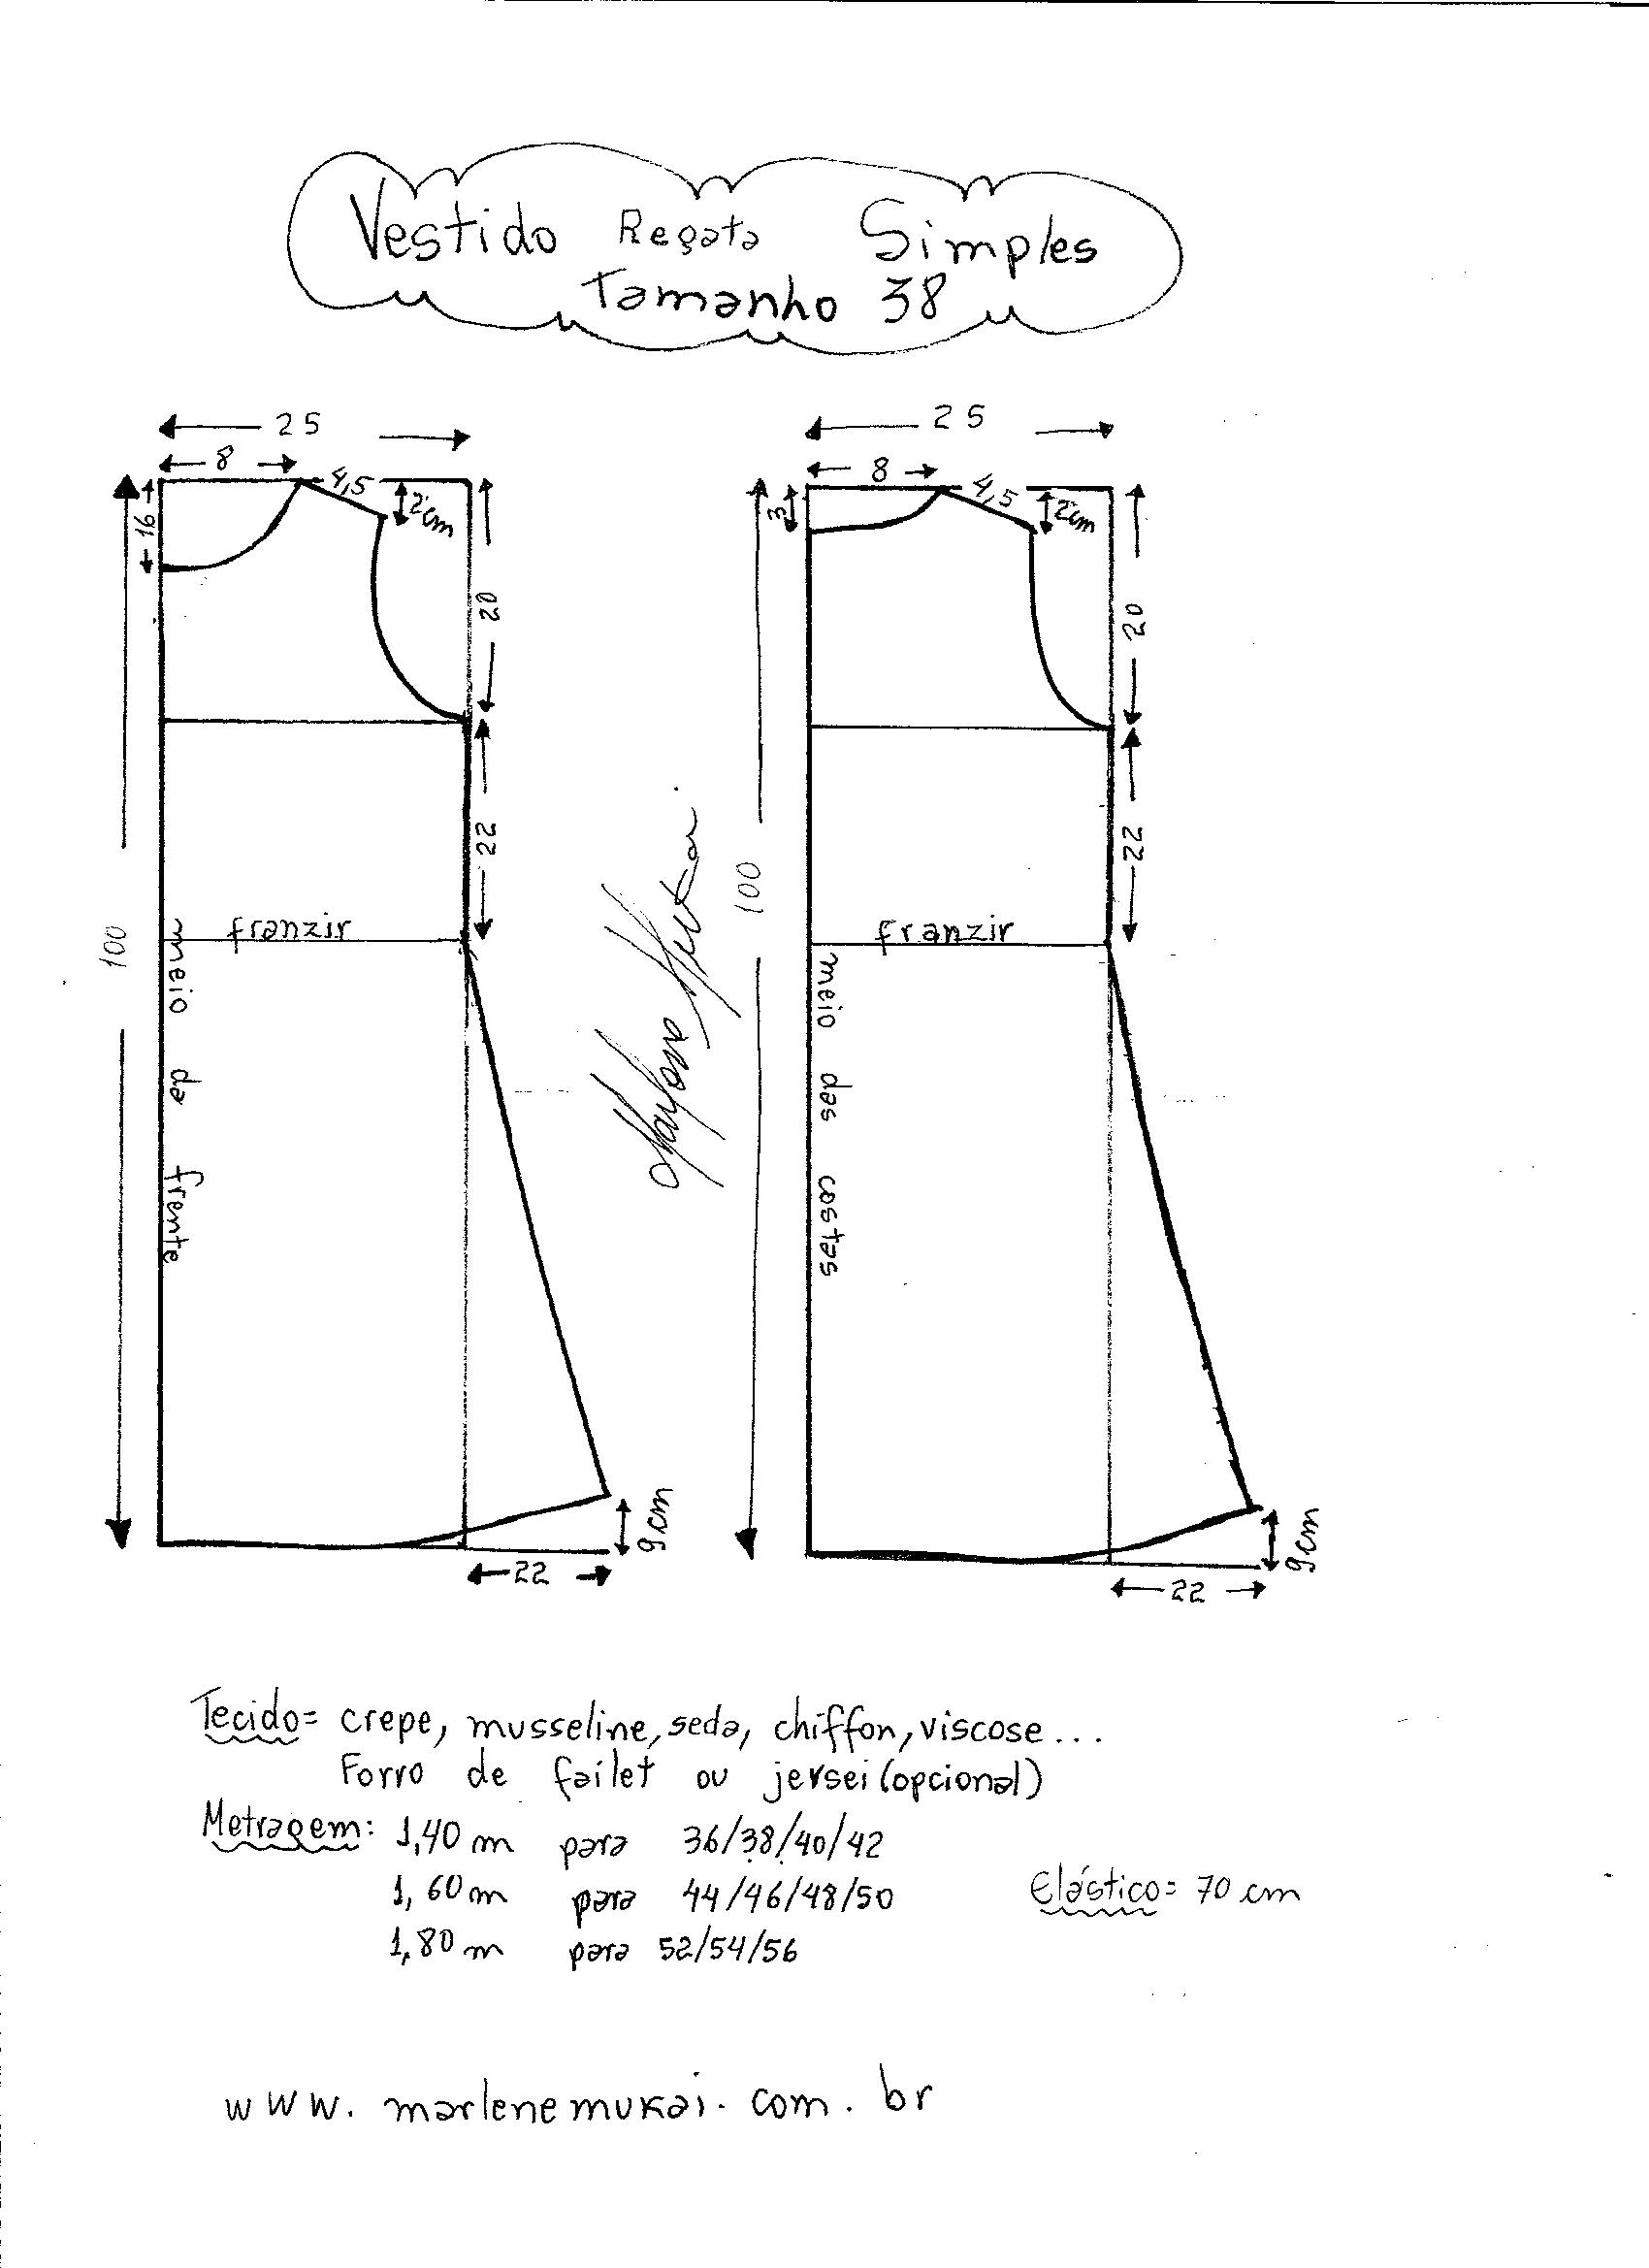 Vestido Regata Simples
Tamanho 38
25
8
4,5
2cm
16
20
22
franzir
100
meio da frente
9cm
22
Marlene Mukai
25
8
4,5
2cm
3
20
22
franzir
100
meio das costas
9cm
22
Tecido= crepe, musseline, seda, chiffon, viscose...
Forro de failet ou jersei (opcional)
Metragem: 1,40 m para 36/38/40/42
1,60 m para 44/46/48/50
Elástico= 70 cm
1,80 m para 52/54/56
www.marlenemukai.com.br